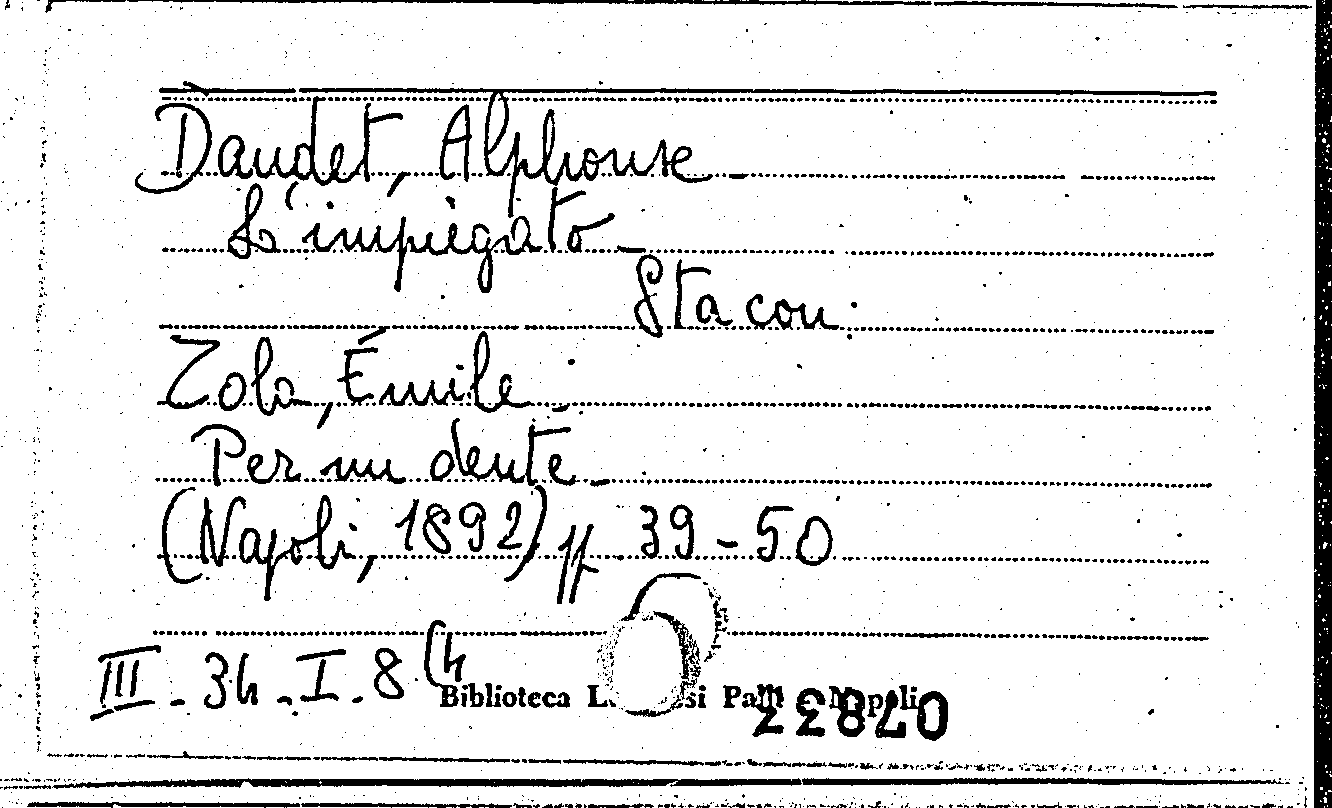 Daudet, Alphonse -
L'impiegato -
Sta con:
Zola, Émile -
Per un dente -
(Napoli, 1892) pp. 39-50
III - 34 - I - 8 (4
Biblioteca Palli Napoli